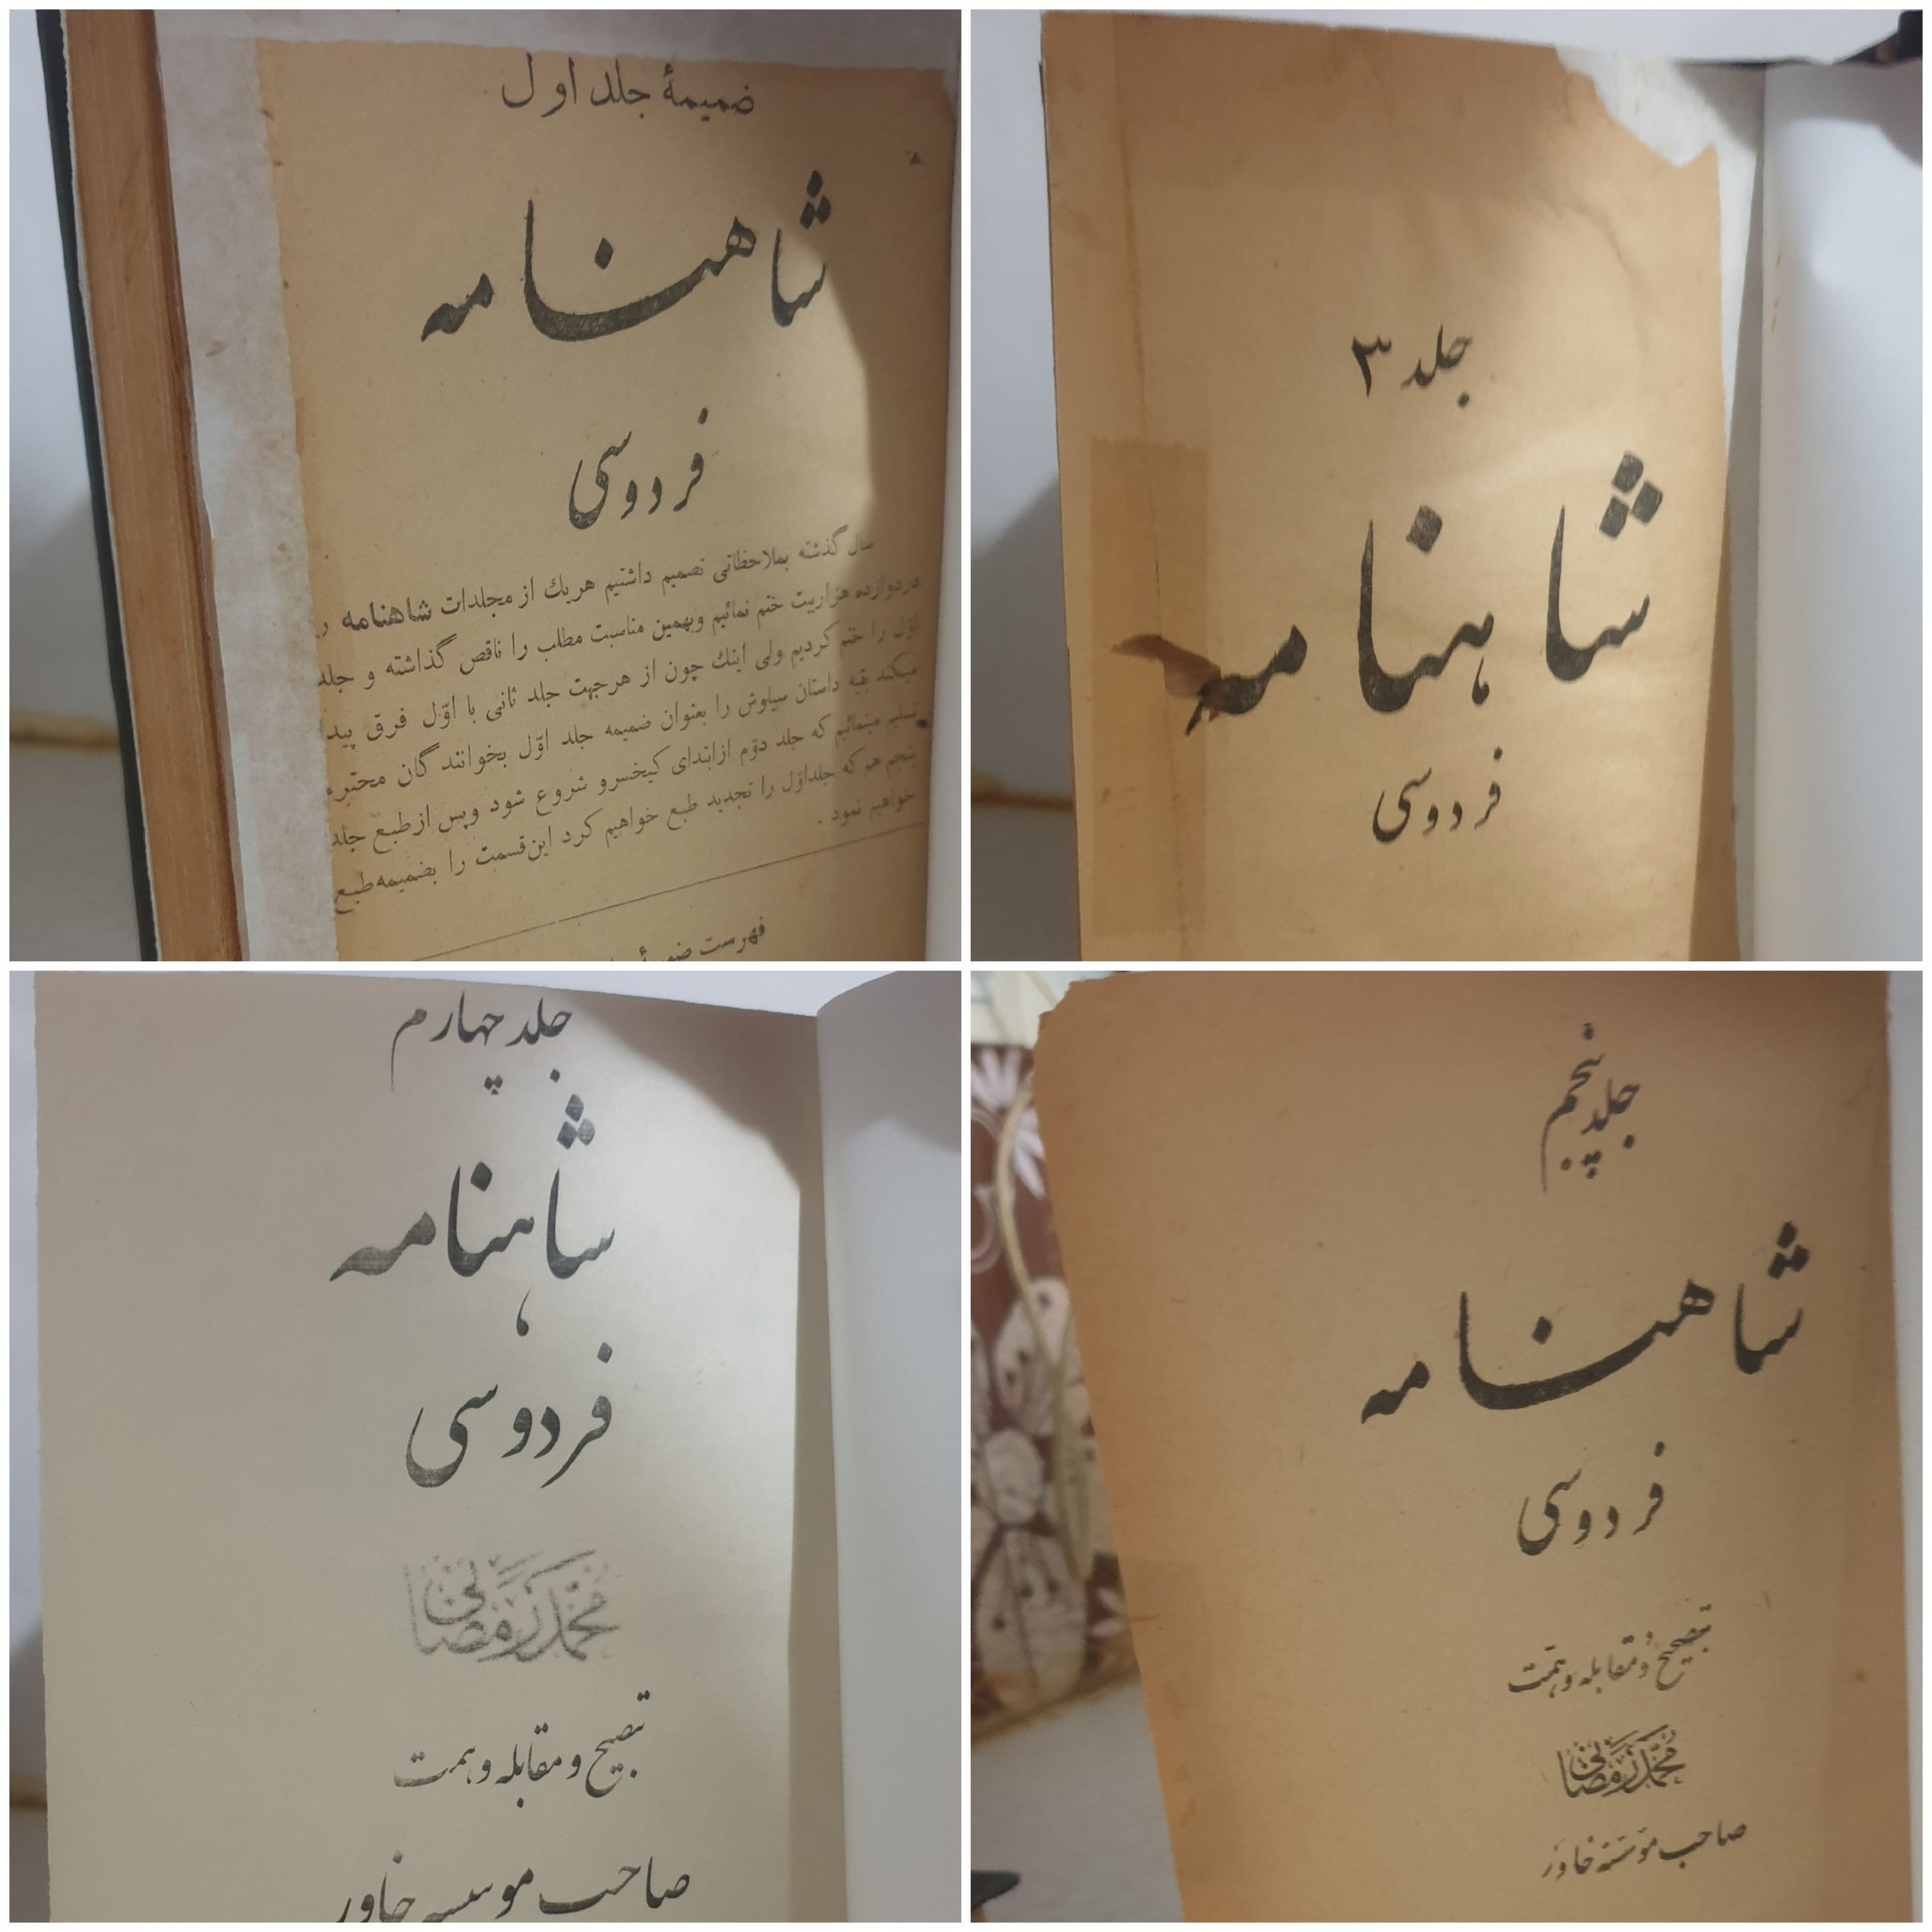 ضمیمهٔ جلد اول
شاهنامه
فردوسی
سال گذشته بملاحظاتی تصمیم داشتیم هریك از مجلدات شاهنامه
دردوازده هزاربیت ختم نمائیم وبهمین مناسبت مطلب را ناقص گذاشته و جلد
اوّل را ختم کردیم ولی اینك چون از هرجهت جلد ثانی با اوّل فرق پیدا
میکند بقیه داستان سیاوش را بعنوان ضمیمه جلد اوّل بخوانندگان محترم
تسلیم مینمائیم که جلد دوّم ازابتدای کیخسرو شروع شود وپس ازطبع جلد
پنجم هم که جلداوّل را تجدید طبع خواهیم کرد این‌قسمت را بضمیمه طبع
خواهیم نمود .
فهرست
جلد ۳
شاهنامه
فردوسی
جلد چهارم
شاهنامه
فردوسی
محمد رمضانی
بتصحیح و مقابله و همت
صاحب موسسه خاور
جلد پنجم
شاهنامه
فردوسی
بتصحیح و مقابله و همّت
محمد رمضانی
صاحب مؤسسه خاور